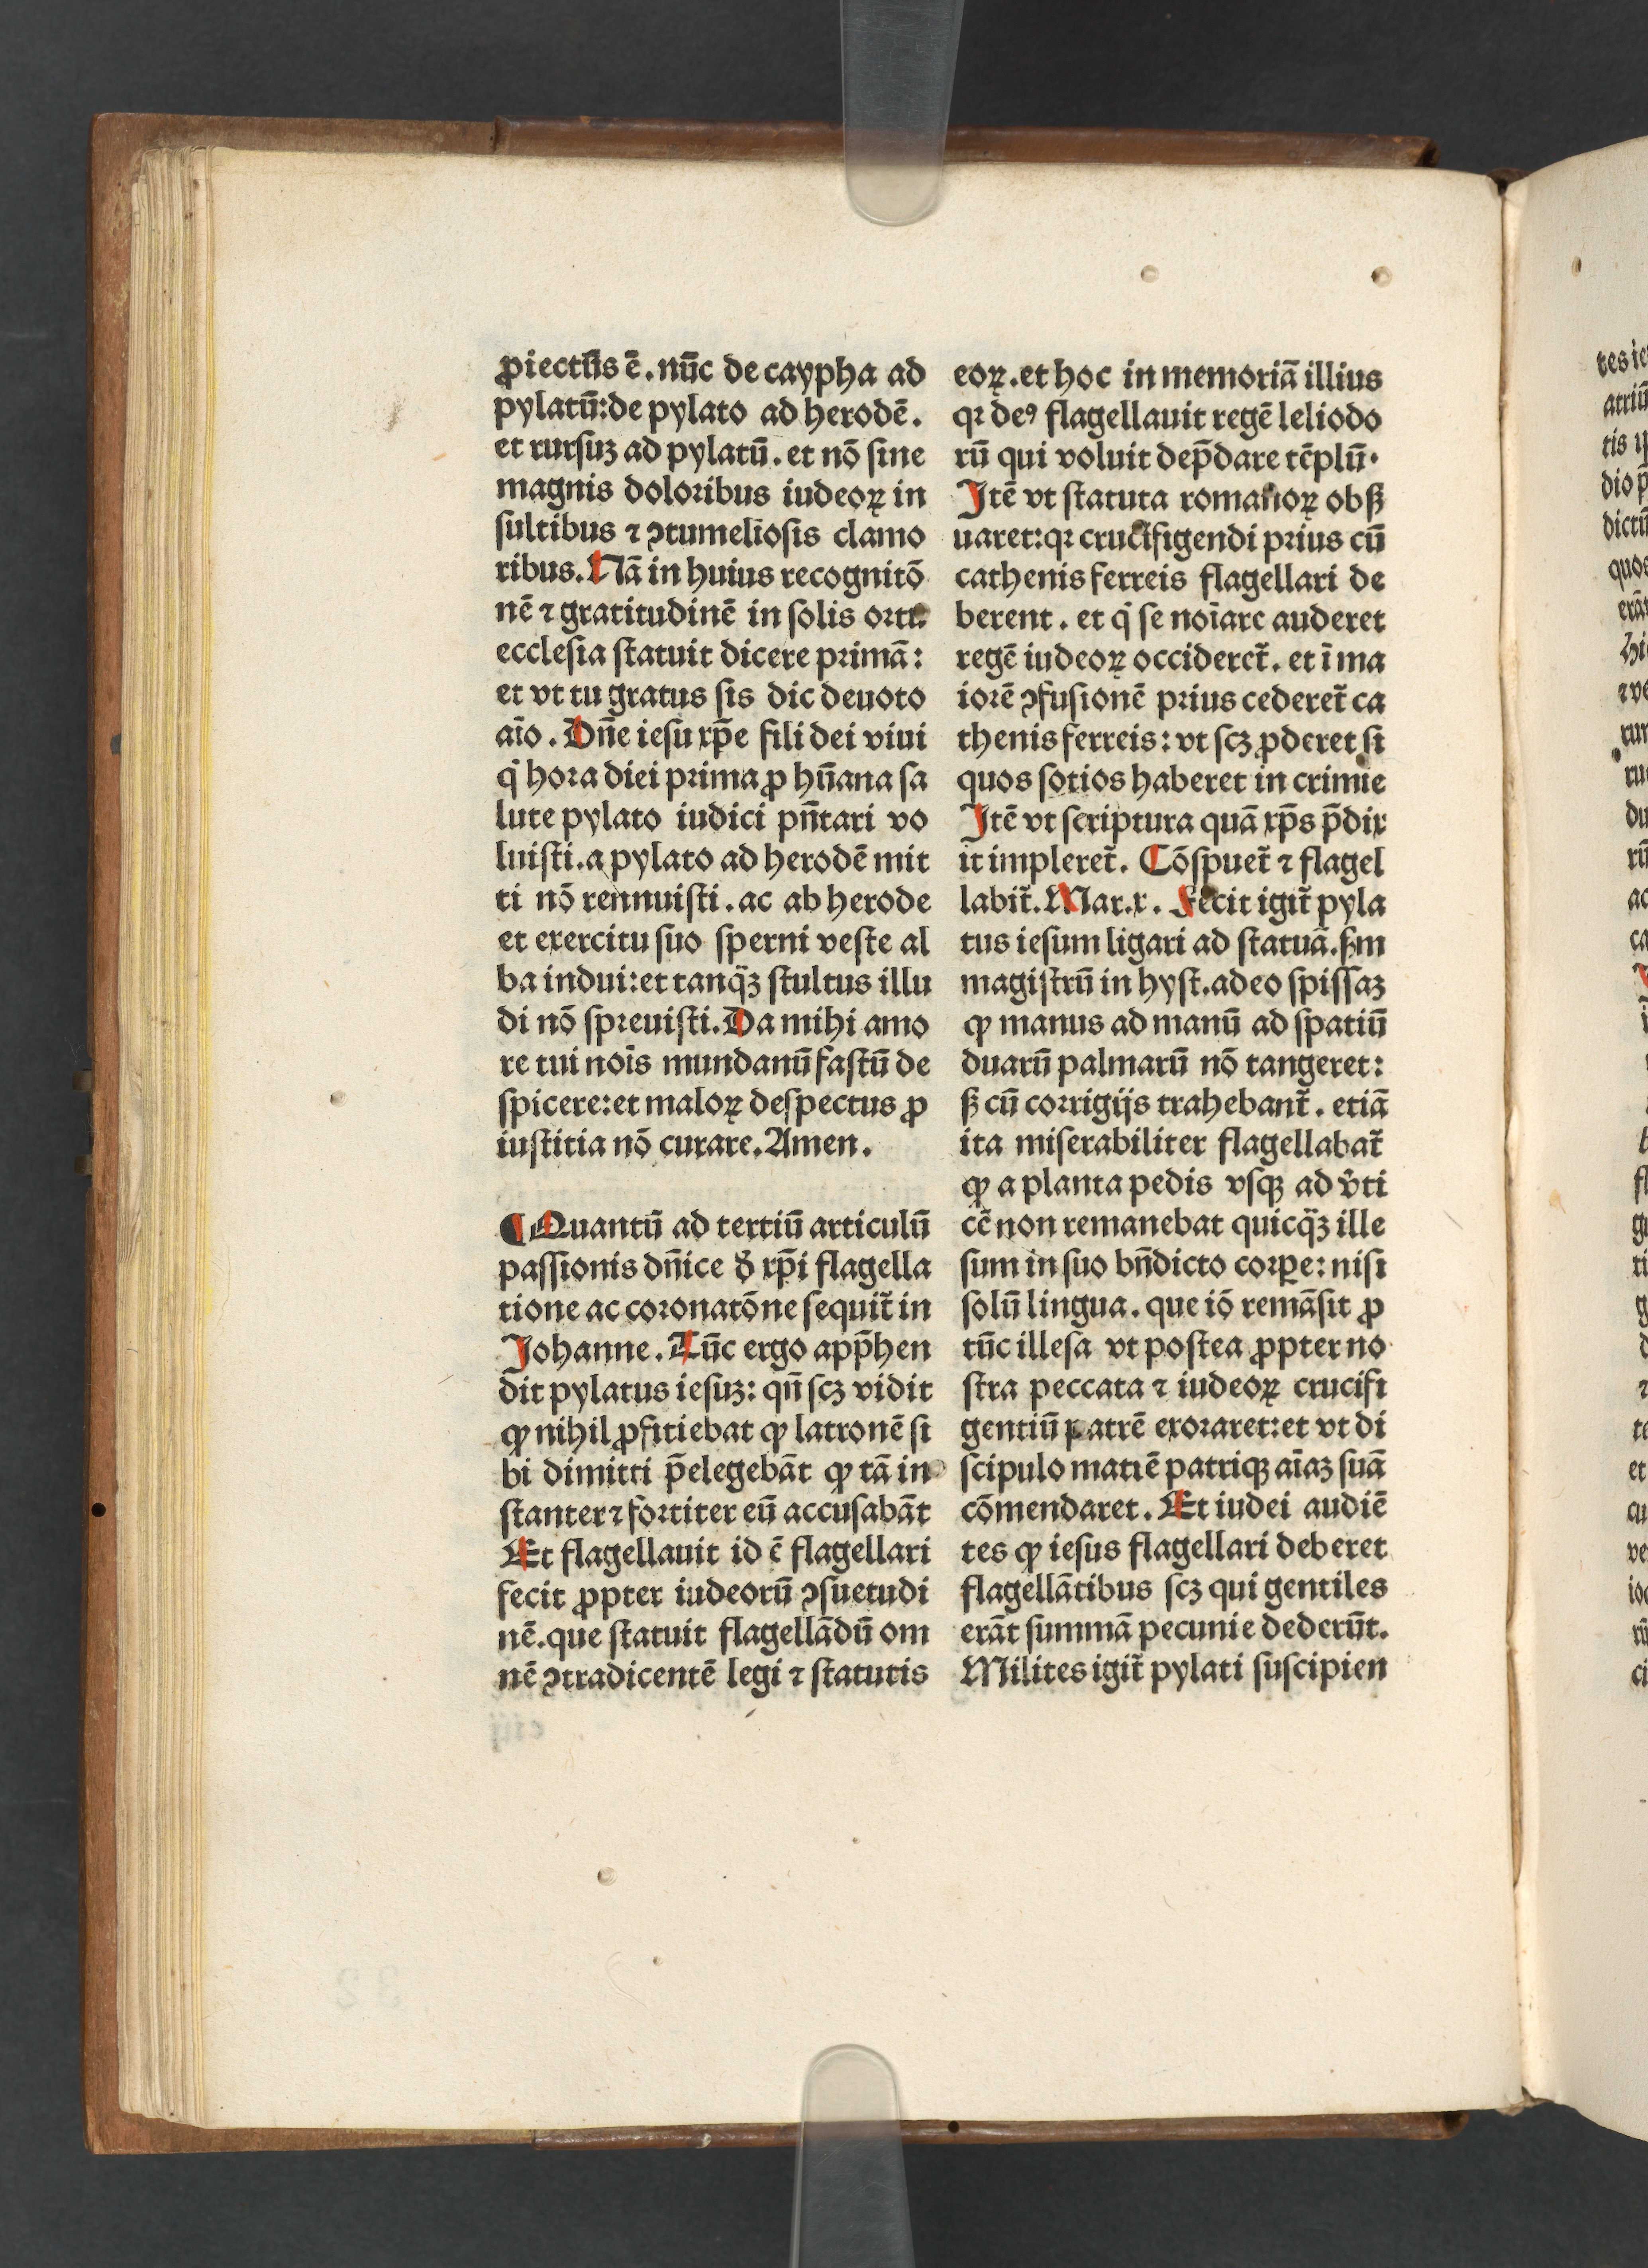 ꝓiectus ē. nūc de caypha ad
pylatū: de pylato ad herodē.
et rursuꝫ ad pylatū. et nō sine
magnis doloribus iudeoꝝ in
sultibus ⁊ ꝯtumeliosis clamo
ribus. Nā in huius recognitō
nē ⁊ gratitudinē in solis ortu
ecclesia statuit dicere primā:
et vt tu gratus sis dic deuoto
aīo. Dn̄e iesu xp̄e fili dei viui
q̇ hora diei prima ꝓ hūana sa
lute pylato iudici pn̄tari vo
luisti. a pylato ad herodē mit
ti nō rennuisti. ac ab herode
et exercitu suo sperni veste al
ba indui: et tanq̄ꝫ stultus illu
di nō spreuisti. Da mihi amo
re tui nois̄ mundanū fastū de
spicere: et maloꝝ despectus ꝓ
iustitia nō curare. Amen.
¶ Quantū ad tertiū articulū
passionis dn̄ice đ xp̄i flagella
tione ac coronatōne sequit̄ in
Johanne. Tūc ergo app̄hen
dit pylatus iesuꝫ: qn̄ scꝫ vidit
ꝙ nihil ꝓfitiebat ꝙ latronē si
bi dimitti p̄elegebāt ꝙ tā in
stanter ⁊ fortiter eū accusabāt
Et flagellauit id ē flagellari
fecit ꝓpter iudeorū ꝯsuetudi
nē. que statuit flagellādū om
nē ꝯtradicentē legi ⁊ statutis
eoꝝ. et hoc in memoriā illius
qꝛ deꝰ flagellauit regē leliodo
rū qui voluit dep̄dare tēplū.
Itē vt statuta romanoꝝ obẜ
uaret: qꝛ crucifigendi prius cū
cathenis ferreis flagellari de
berent. et q̇ se noīarc auderet
regē iudeoꝝ occideret̄. et ī ma
iorē ꝯfusionē prius cederet̄ ca
thenis ferreis: vt scꝫ ꝓderet si
quos sotios haberet in crimīe
Itē vt scriptura quā xp̄s p̄dix
it impleret̄. Cōspuet̄ ⁊ flagel
labit̄. Mar. x. Fecit igit̄ pyla
tus iesum ligari ad statuā. ẜm
magistrū in hyst. adeo spissaꝫ
ꝙ manus ad manū ad spatiū
duarū palmarū nō tangeret:
ẜ cū corrigijs trahebant̄. etiā
ita miserabiliter flagellabat̄
ꝙ a planta pedis vsqꝫ ad v̓ti
cē non remanebat quicq̄ꝫ ille
sum in suo bn̄dicto corꝑe: nisi
solū lingua. que iō remāsit ꝓ
tūc illesa vt postea ꝓpter no
stra peccata ⁊ iudeoꝝ crucifi
gentiū patrē exoraret: et vt di
scipulo matrē patriqꝫ aīaꝫ suā
cōmendaret. Et iudei audiē
tes ꝙ iesus flagellari deberet
flagellātibus scꝫ qui gentiles
erāt summā pecunie dederūt.
Milites igit̄ pylati suscipien